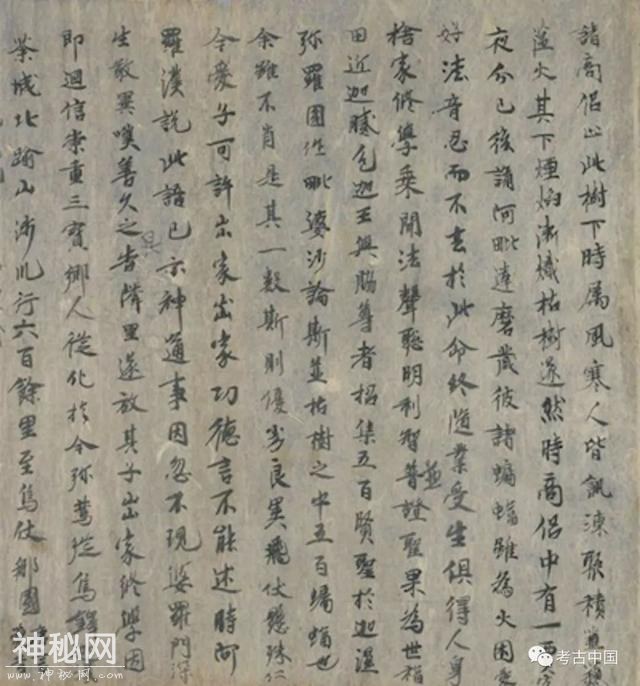 諸商侶止此樹下時属風寒人皆飢凍聚積
藴火其下煙焰漸熾枯樹遂然時商侶中有一賈
夜分已後誦阿毗達磨藏彼諸蝙蝠雖為火困愛
好法音忍而不去於此命終隨業受生俱得人身
捨家修學乘聞法聲聡明利智普證聖果為世福
並
田近迦膩色迦王與脇尊者招集五百賢聖於迦濕
弥羅國作毗婆沙論斯並枯樹之中五百蝙蝠也
余雖不肖是其一數斯則優劣良異飛伏懸殊仁
今愛子可許出家出家功德言不能述時阿
羅漢說此語已示神通事因忽不現婆羅門深
具
生敬異嘆善久之告隣里遂放其子出家修學因
即迴信崇重三寶鄉人從化於今弥篤從烏鐸
荼城北踰山涉川行六百餘里至烏仗那國
神秘网
www.神秘网.com
考古中国